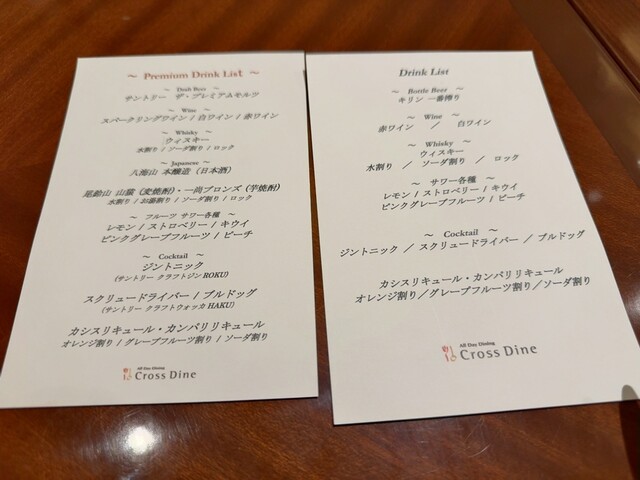 ～ Premium Drink List ～
～ Draft Beer ～
サントリー ザ・プレミアムモルツ
～ Wine ～
スパークリングワイン / 白ワイン / 赤ワイン
～ Whisky ～
ウィスキー
水割り / ソーダ割り / ロック
～ Japanese ～
八海山 本醸造（日本酒）
尾鈴山 山猿（麦焼酎）・一尚ブロンズ（芋焼酎）
水割り / お湯割り / ソーダ割り / ロック
～ フルーツ サワー各種 ～
レモン / ストロベリー / キウイ
ピンクグレープフルーツ / ピーチ
～ Cocktail ～
ジントニック
（サントリー クラフトジン ROKU）
スクリュードライバー / ブルドッグ
（サントリー クラフトウォッカ HAKU）
カシスリキュール・カンパリリキュール
オレンジ割り / グレープフルーツ割り / ソーダ割り
All Day Dining
Cross Dine
Drink List
～ Bottle Beer ～
キリン 一番搾り
～ Wine ～
赤ワイン ／ 白ワイン
～ Whisky ～
ウィスキー
水割り ／ ソーダ割り ／ ロック
～ サワー各種 ～
レモン / ストロベリー / キウイ
ピンクグレープフルーツ / ピーチ
～ Cocktail ～
ジントニック ／ スクリュードライバー ／ ブルドッグ
カシスリキュール・カンパリリキュール
オレンジ割り／グレープフルーツ割り／ソーダ割り
All Day Dining
Cross Dine